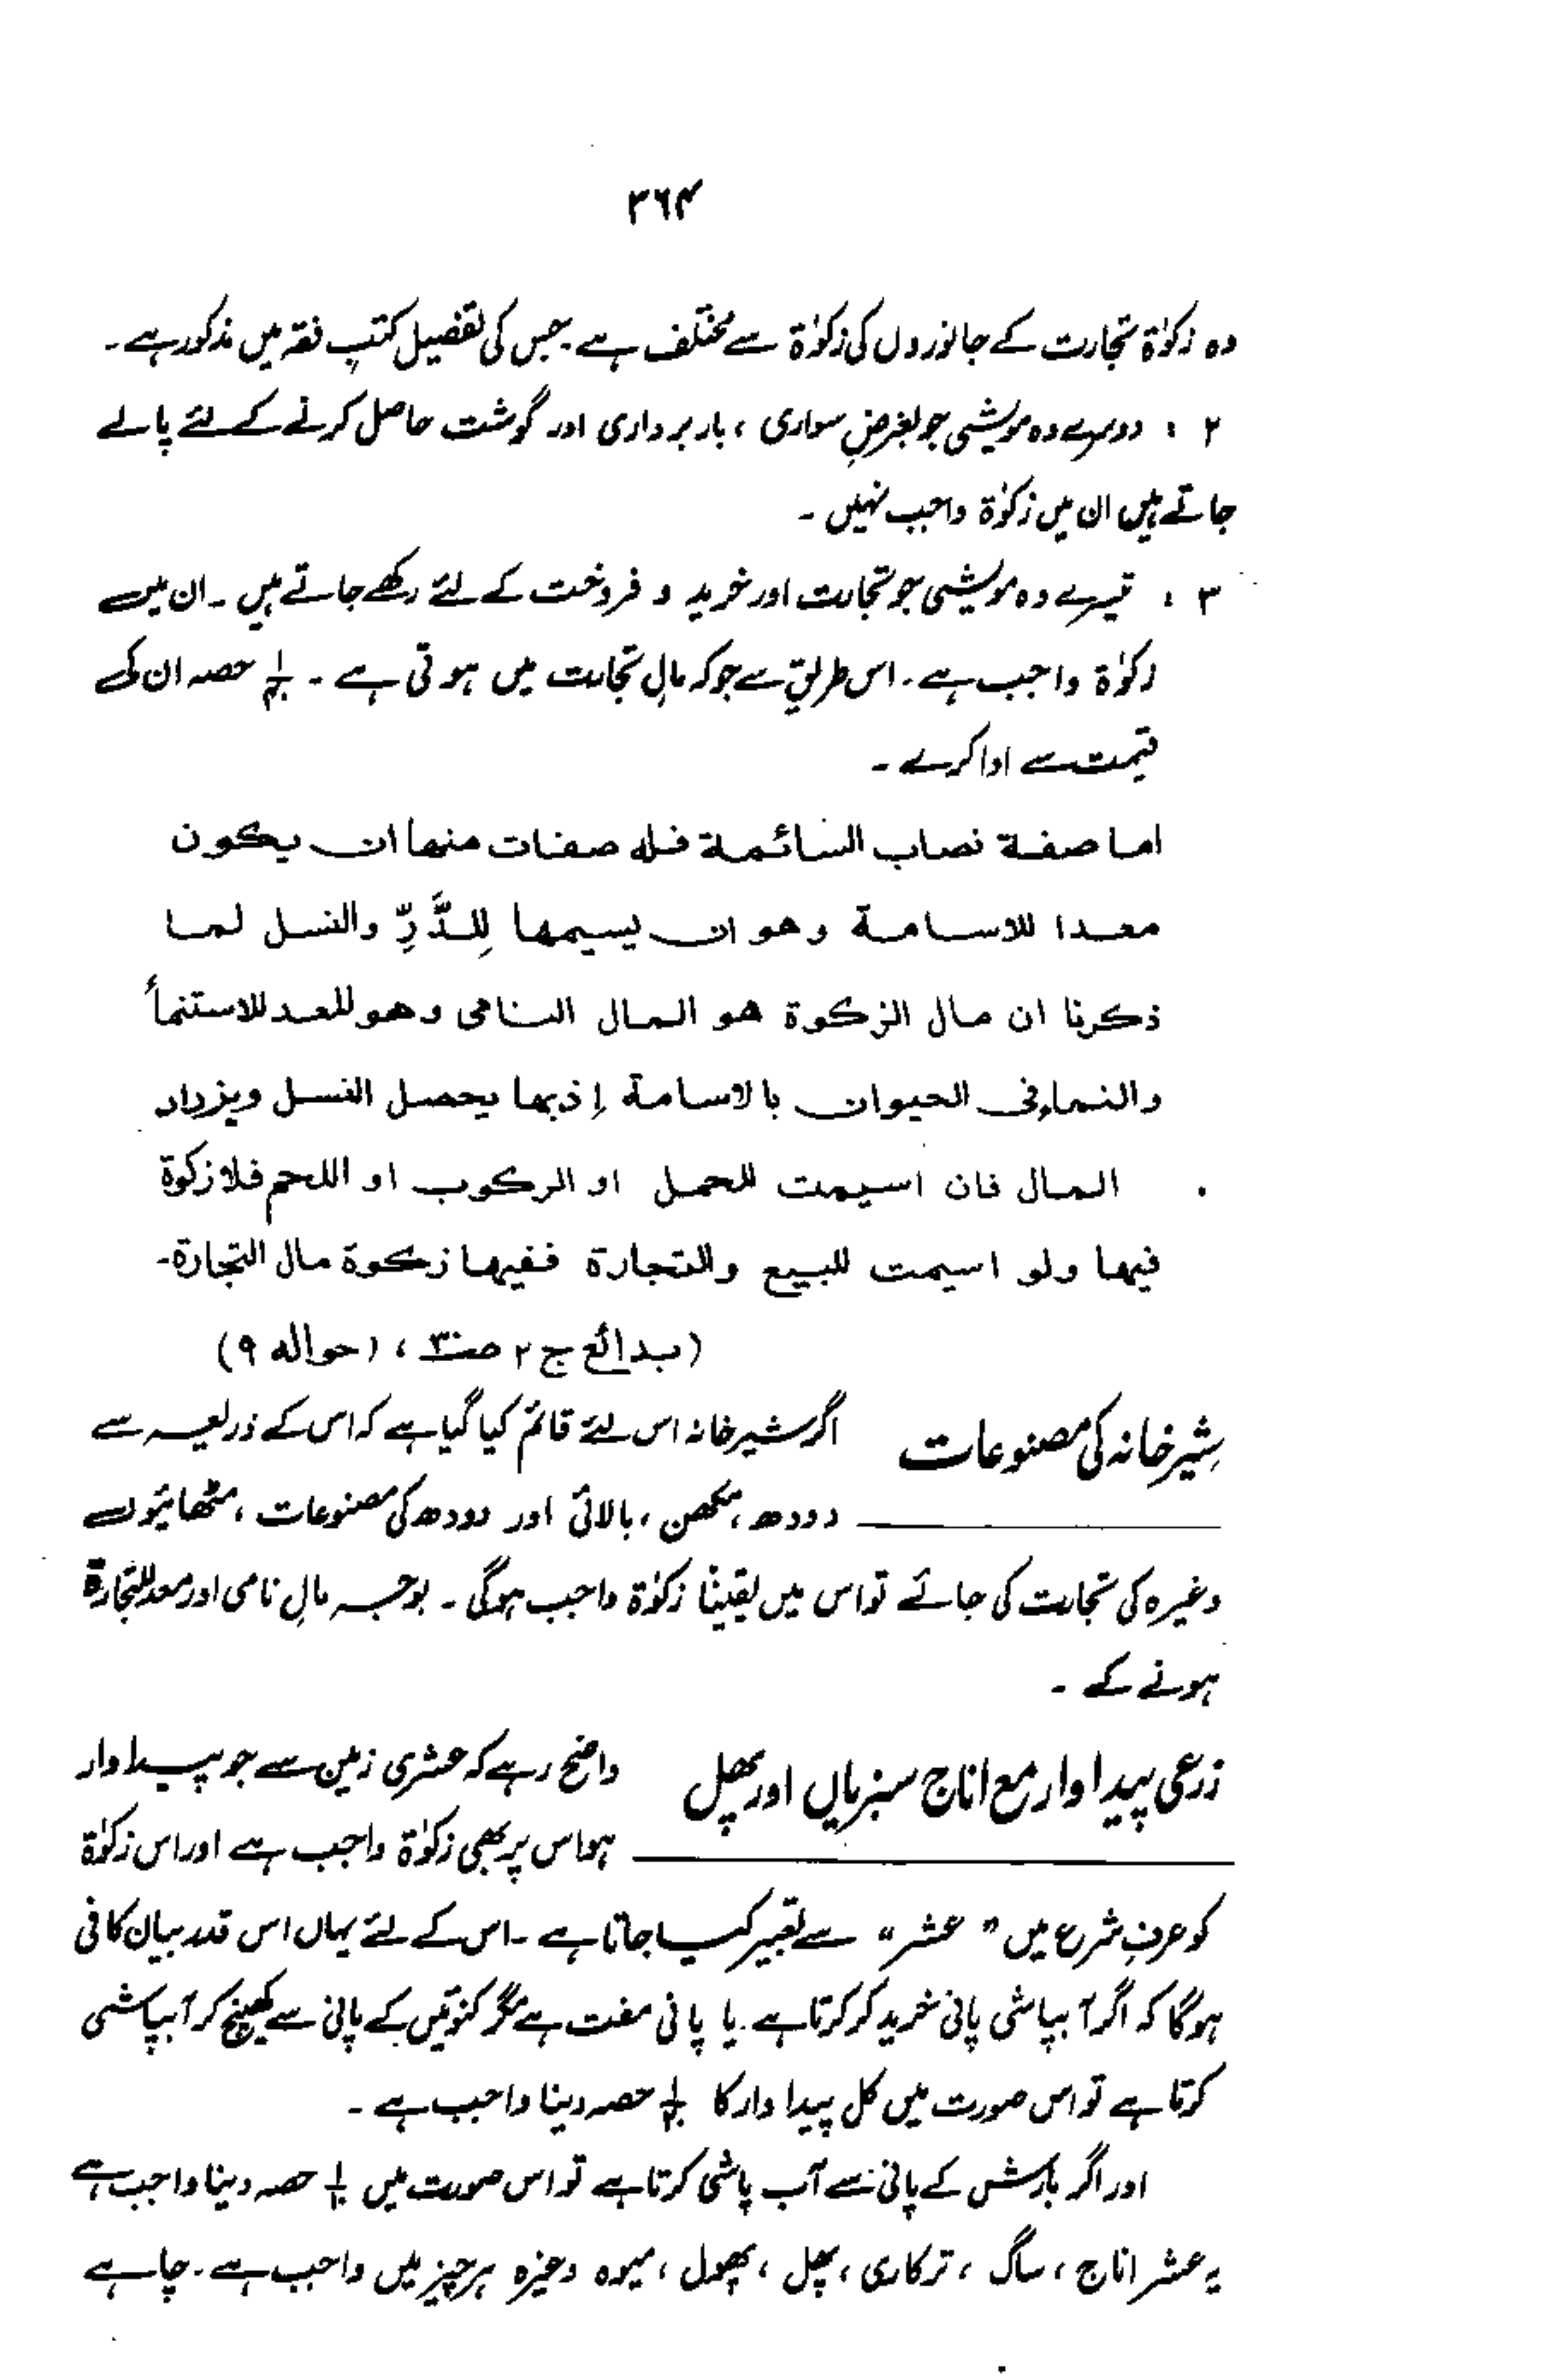 ۳۶۴
وہ زکوٰۃ تجارت کے جانوروں کی زکوٰۃ سے مختلف ہے۔ جس کی تفصیل کتب فقہ میں مذکور ہے۔
۲ : دوسرے وہ مویشی جو بغرضِ سواری ، باربرداری اور گوشت حاصل کرنے کے لئے پالے
جاتے ہیں ان میں زکوٰۃ واجب نہیں ۔
۳ : تیسرے وہ مویشی جو تجارت اور خرید و فروخت کے لئے رکھے جاتے ہیں ۔ ان میں
زکوٰۃ واجب ہے ۔ اس طریق سے جو کہ مالِ تجارت میں ہوتی ہے ۔ حصہ ان کی
قیمت سے ادا کرے ۔
اما صفة نصاب السائمة فله صفات منها ان يكون
معدا للاسامة وهو ان يسيمها لِلدَّرِّ والنسل لما
ذكرنا ان مال الزكوة هو المال النامى وهو المعد للاستنمأ
والنماء فى الحيوان بالاسامة إذ بها يحصل النسل ويزداد
المال فان اسيمت للحمل او الركوب او اللحم فلا زكوة
فيها ولو اسيمت للبيع والتجارة ففيها زكوة مال التجارة۔
(بدائع ج ۲ ص۳۰ ، (حواله ۹)
شِیرخانہ کی مصنوعات
اگر شیرخانہ اس لئے قائم کیا گیا ہے کہ اس کے ذریعہ سے
دودھ ، مکھن ، بالائی اور دودھ کی مصنوعات ، مٹھائیوں
وغیرہ کی تجارت کی جائے تو اس میں یقیناً زکوٰۃ واجب ہوگی ۔ بوجہ مالِ نامی اور معد للتجارة
ہونے کے ۔
زرعی پیداوار مع اناج سبزیاں اور پھل
واضح رہے کہ عشری زمین سے جو پیداوار
ہو اس پر بھی زکوٰۃ واجب ہے اور اس زکوٰۃ
کو عرفِ شرع میں ” عشر “ سے تعبیر کیا جاتا ہے ۔ اس کے لئے یہاں اس قدر بیان کافی
ہوگا کہ اگر آبپاشی پانی خرید کر کرتا ہے ۔ یا پانی مفت ہے مگر کنوئیں کے پانی سے کھینچ کر آبپاشی
کرتا ہے تو اس صورت میں کل پیداوار کا حصہ دینا واجب ہے ۔
اور اگر بارش کے پانی سے آب پاشی کرتا ہے تو اس صورت میں حصہ دینا واجب ہے
یہ عشر اناج ، ساگ ، ترکاری ، پھل ، پھول ، میوہ وغیرہ ہر چیز میں واجب ہے ۔ چاہے